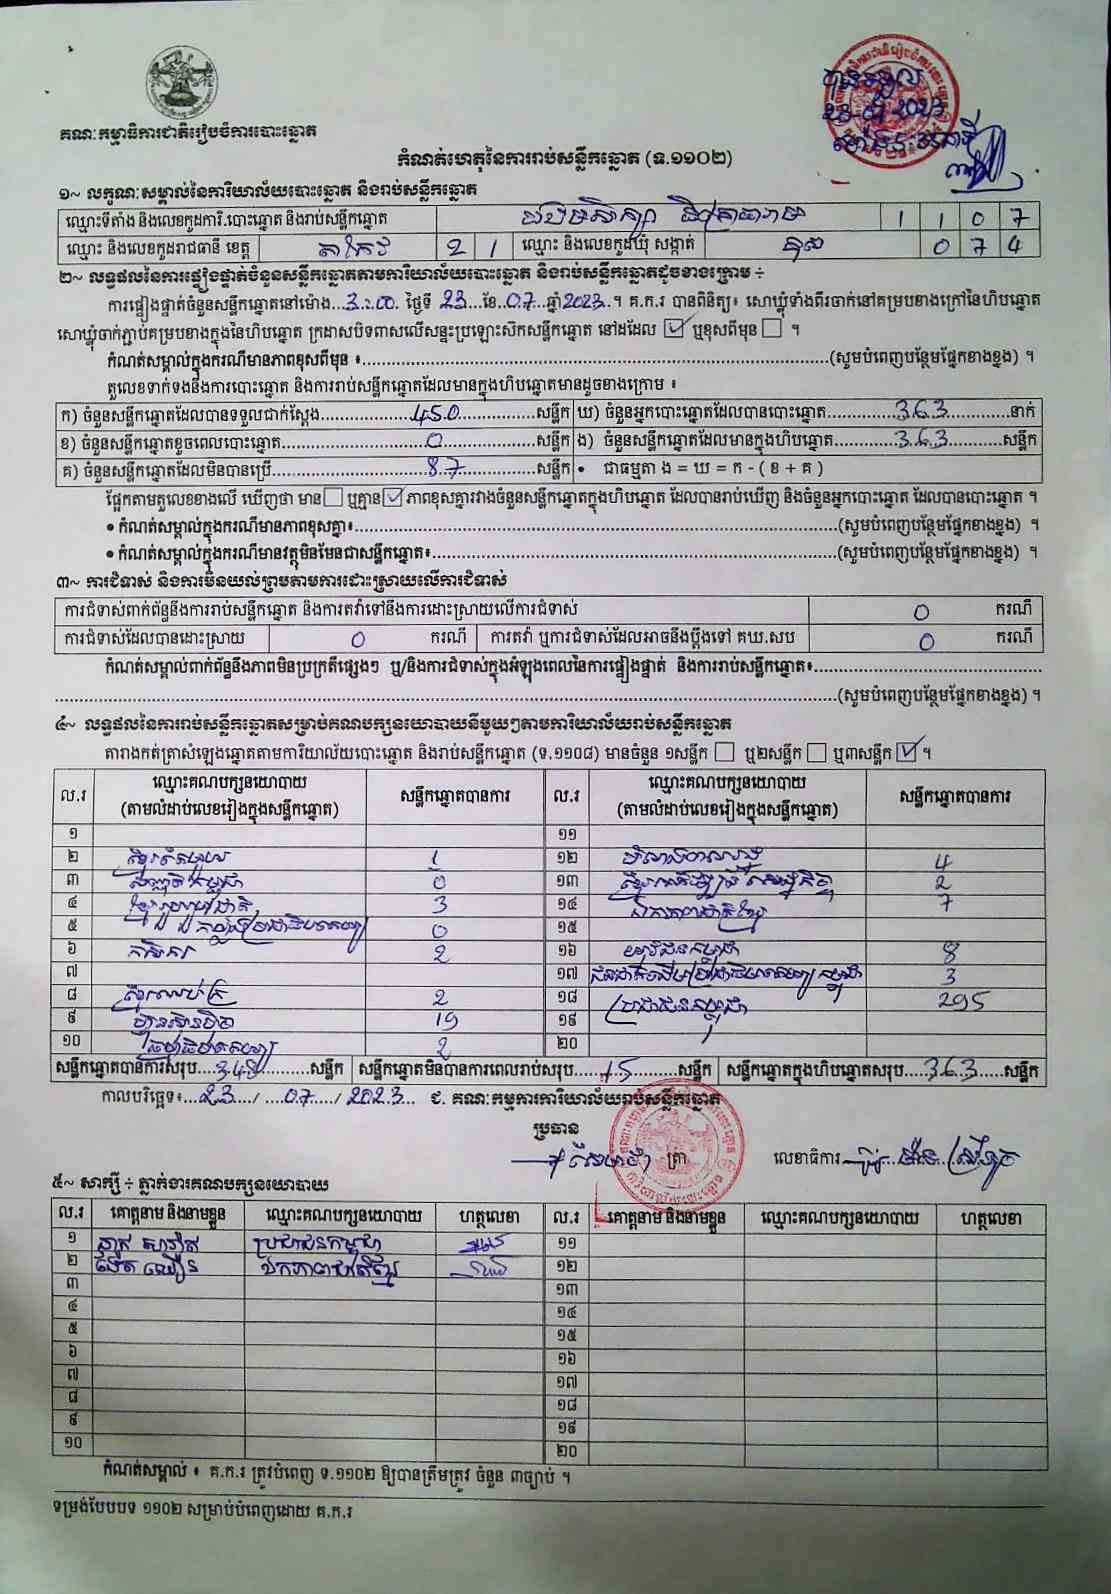 គណៈកម្មាធិការជាតិរៀបចំការបោះឆ្នោត
បានទទួល
23-07-2023
កំណត់ហេតុនៃការរាប់សន្លឹកឆ្នោត (ទ.១១០២)
១~ លក្ខណៈសម្គាល់នៃការិយាល័យបោះឆ្នោត និងរាប់សន្លឹកឆ្នោត
ឈ្មោះទីតាំង និងលេខកូដការិ.បោះឆ្នោត និងរាប់សន្លឹកឆ្នោត 1 1 0 7
ឈ្មោះ និងលេខកូដរាជធានី ខេត្ត តាកែវ 2 1 ឈ្មោះ និងលេខកូដឃុំ សង្កាត់ 0 7 4
២~ លទ្ធផលនៃការផ្ទៀងផ្ទាត់ចំនួនសន្លឹកឆ្នោតតាមការិយាល័យបោះឆ្នោត និងរាប់សន្លឹកឆ្នោតដូចខាងក្រោម ÷
ការផ្ទៀងផ្ទាត់ចំនួនសន្លឹកឆ្នោតនៅម៉ោង...3:00. ថ្ងៃទី 23...ខែ.07...ឆ្នាំ2023..។ គ.ក.រ បានពិនិត្យ៖ សោឃ្លុំទាំងពីរចាក់នៅគម្របខាងក្រៅនៃហិបឆ្នោត
សោឃ្លុំចាក់ភ្ជាប់គម្របខាងក្នុងនៃហិបឆ្នោត ក្រដាសបិទពាសលើសន្ទះប្រឡោះសិកសន្លឹកឆ្នោត នៅដដែល ☑ ឬខុសពីមុន ☐ ។
កំណត់សម្គាល់ក្នុងករណីមានភាពខុសពីមុន ៖..........(សូមបំពេញបន្ថែមផ្នែកខាងខ្នង) ។
តួលេខទាក់ទងនឹងការបោះឆ្នោត និងការរាប់សន្លឹកឆ្នោតដែលមានក្នុងហិបឆ្នោតមានដូចខាងក្រោម ៖
ក) ចំនួនសន្លឹកឆ្នោតដែលបានទទួលជាក់ស្តែង..........450..........សន្លឹក ឃ) ចំនួនអ្នកបោះឆ្នោតដែលបានបោះឆ្នោត..........363..........នាក់
ខ) ចំនួនសន្លឹកឆ្នោតខូចពេលបោះឆ្នោត..........0..........សន្លឹក ង) ចំនួនសន្លឹកឆ្នោតដែលមានក្នុងហិបឆ្នោត..........363..........សន្លឹក
គ) ចំនួនសន្លឹកឆ្នោតដែលមិនបានប្រើ..........87..........សន្លឹក • ជាធម្មតា ង = ឃ = ក - ( ខ + គ )
ផ្អែកតាមតួលេខខាងលើ ឃើញថា មាន ☐ ឬគ្មាន ☑ ភាពខុសគ្នារវាងចំនួនសន្លឹកឆ្នោតក្នុងហិបឆ្នោត ដែលបានរាប់ឃើញ និងចំនួនអ្នកបោះឆ្នោត ដែលបានបោះឆ្នោត ។
• កំណត់សម្គាល់ក្នុងករណីមានភាពខុសគ្នា៖..........(សូមបំពេញបន្ថែមផ្នែកខាងខ្នង) ។
• កំណត់សម្គាល់ក្នុងករណីមានវត្ថុមិនមែនជាសន្លឹកឆ្នោត៖..........(សូមបំពេញបន្ថែមផ្នែកខាងខ្នង) ។
៣~ ការជំទាស់ និងការមិនយល់ព្រមតាមការដោះស្រាយលើការជំទាស់
ការជំទាស់ពាក់ព័ន្ធនឹងការរាប់សន្លឹកឆ្នោត និងការតវ៉ាទៅនឹងការដោះស្រាយលើការជំទាស់ 0 ករណី
ការជំទាស់ដែលបានដោះស្រាយ 0 ករណី ការតវ៉ា ឬការជំទាស់ដែលអាចនឹងប្តឹងទៅ គឃ.សប 0 ករណី
កំណត់សម្គាល់ពាក់ព័ន្ធនឹងភាពមិនប្រក្រតីផ្សេងៗ ឬ/និងការជំទាស់ក្នុងអំឡុងពេលនៃការផ្ទៀងផ្ទាត់ និងការរាប់សន្លឹកឆ្នោត៖..........
..........(សូមបំពេញបន្ថែមផ្នែកខាងខ្នង) ។
៤~ លទ្ធផលនៃការរាប់សន្លឹកឆ្នោតសម្រាប់គណបក្សនយោបាយនីមួយៗតាមការិយាល័យរាប់សន្លឹកឆ្នោត
តារាងកត់ត្រាសំឡេងឆ្នោតតាមការិយាល័យបោះឆ្នោត និងរាប់សន្លឹកឆ្នោត (ទ.១១០៨) មានចំនួន ១សន្លឹក ☐ ឬ២សន្លឹក ☐ ឬ៣សន្លឹក ☑ ។
ល.រ ឈ្មោះគណបក្សនយោបាយ (តាមលំដាប់លេខរៀងក្នុងសន្លឹកឆ្នោត) សន្លឹកឆ្នោតបានការ ល.រ ឈ្មោះគណបក្សនយោបាយ (តាមលំដាប់លេខរៀងក្នុងសន្លឹកឆ្នោត) សន្លឹកឆ្នោតបានការ
១ ១១
២ ខ្មែររួបរួម 1 ១២ 4
៣ 0 ១៣ ខ្មែរអភិវឌ្ឍន៍សេដ្ឋកិច្ច 2
៤ ខ្មែររួបរួមជាតិ 3 ១៤ ឯកភាពជាតិខ្មែរ 7
៥ 0 ១៥
៦ កសិករ 2 ១៦ យុវជនកម្ពុជា 8
៧ ១៧ ជនជាតិដើមប្រជាធិបតេយ្យកម្ពុជា 3
៨ 2 ១៨ ប្រជាជនកម្ពុជា 295
៩ ហ៊្វុនស៊ិនប៉ិច 19 ១៩
១០ ធម្មាធិបតេយ្យ 2 ២០
សន្លឹកឆ្នោតបានការសរុប....348..........សន្លឹក សន្លឹកឆ្នោតមិនបានការពេលរាប់សរុប......15..........សន្លឹក សន្លឹកឆ្នោតក្នុងហិបឆ្នោតសរុប....363......សន្លឹក
កាលបរិច្ឆេទ៖...23..../....07..../ 2023... ជ. គណៈកម្មការការិយាល័យរាប់សន្លឹកឆ្នោត
ប្រធាន
ត្រា លេខាធិការ
៥~ សាក្សី ÷ ភ្នាក់ងារគណបក្សនយោបាយ
ល.រ គោត្តនាម និងនាមខ្លួន ឈ្មោះគណបក្សនយោបាយ ហត្ថលេខា ល.រ គោត្តនាម និងនាមខ្លួន ឈ្មោះគណបក្សនយោបាយ ហត្ថលេខា
១ ប្រជាជនកម្ពុជា ១១
២ ឯកភាពជាតិខ្មែរ ១២
៣ ១៣
៤ ១៤
៥ ១៥
៦ ១៦
៧ ១៧
៨ ១៨
៩ ១៩
១០ ២០
កំណត់សម្គាល់ ៖ គ.ក.រ ត្រូវបំពេញ ទ.១១០២ ឱ្យបានត្រឹមត្រូវ ចំនួន ៣ច្បាប់ ។
ទម្រង់បែបបទ ១១០២ សម្រាប់បំពេញដោយ គ.ក.រ